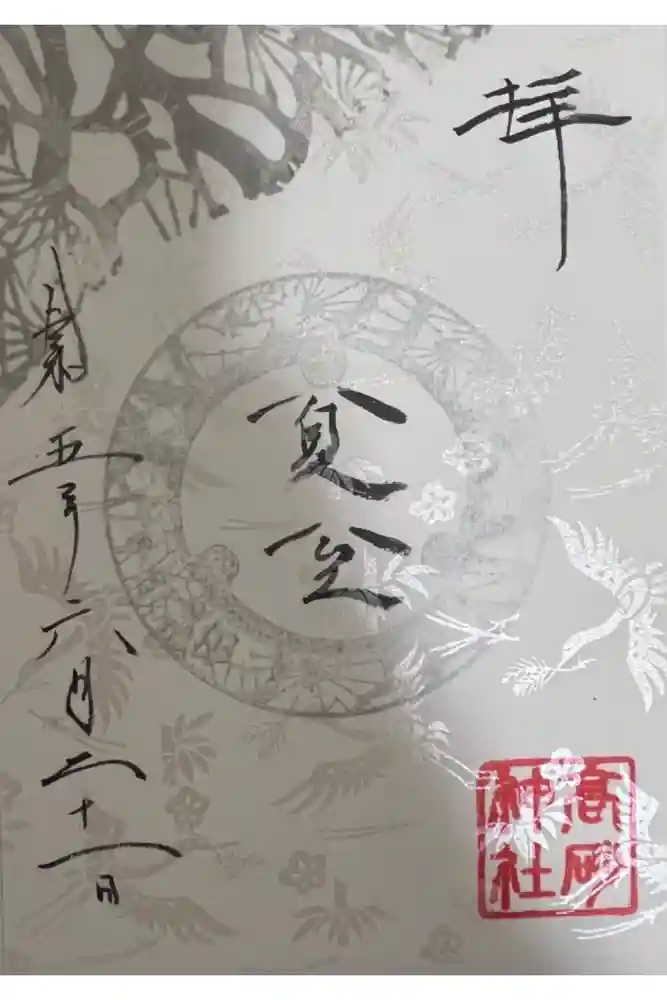 拝
夏至
五年六月二十一日
高砂
神社